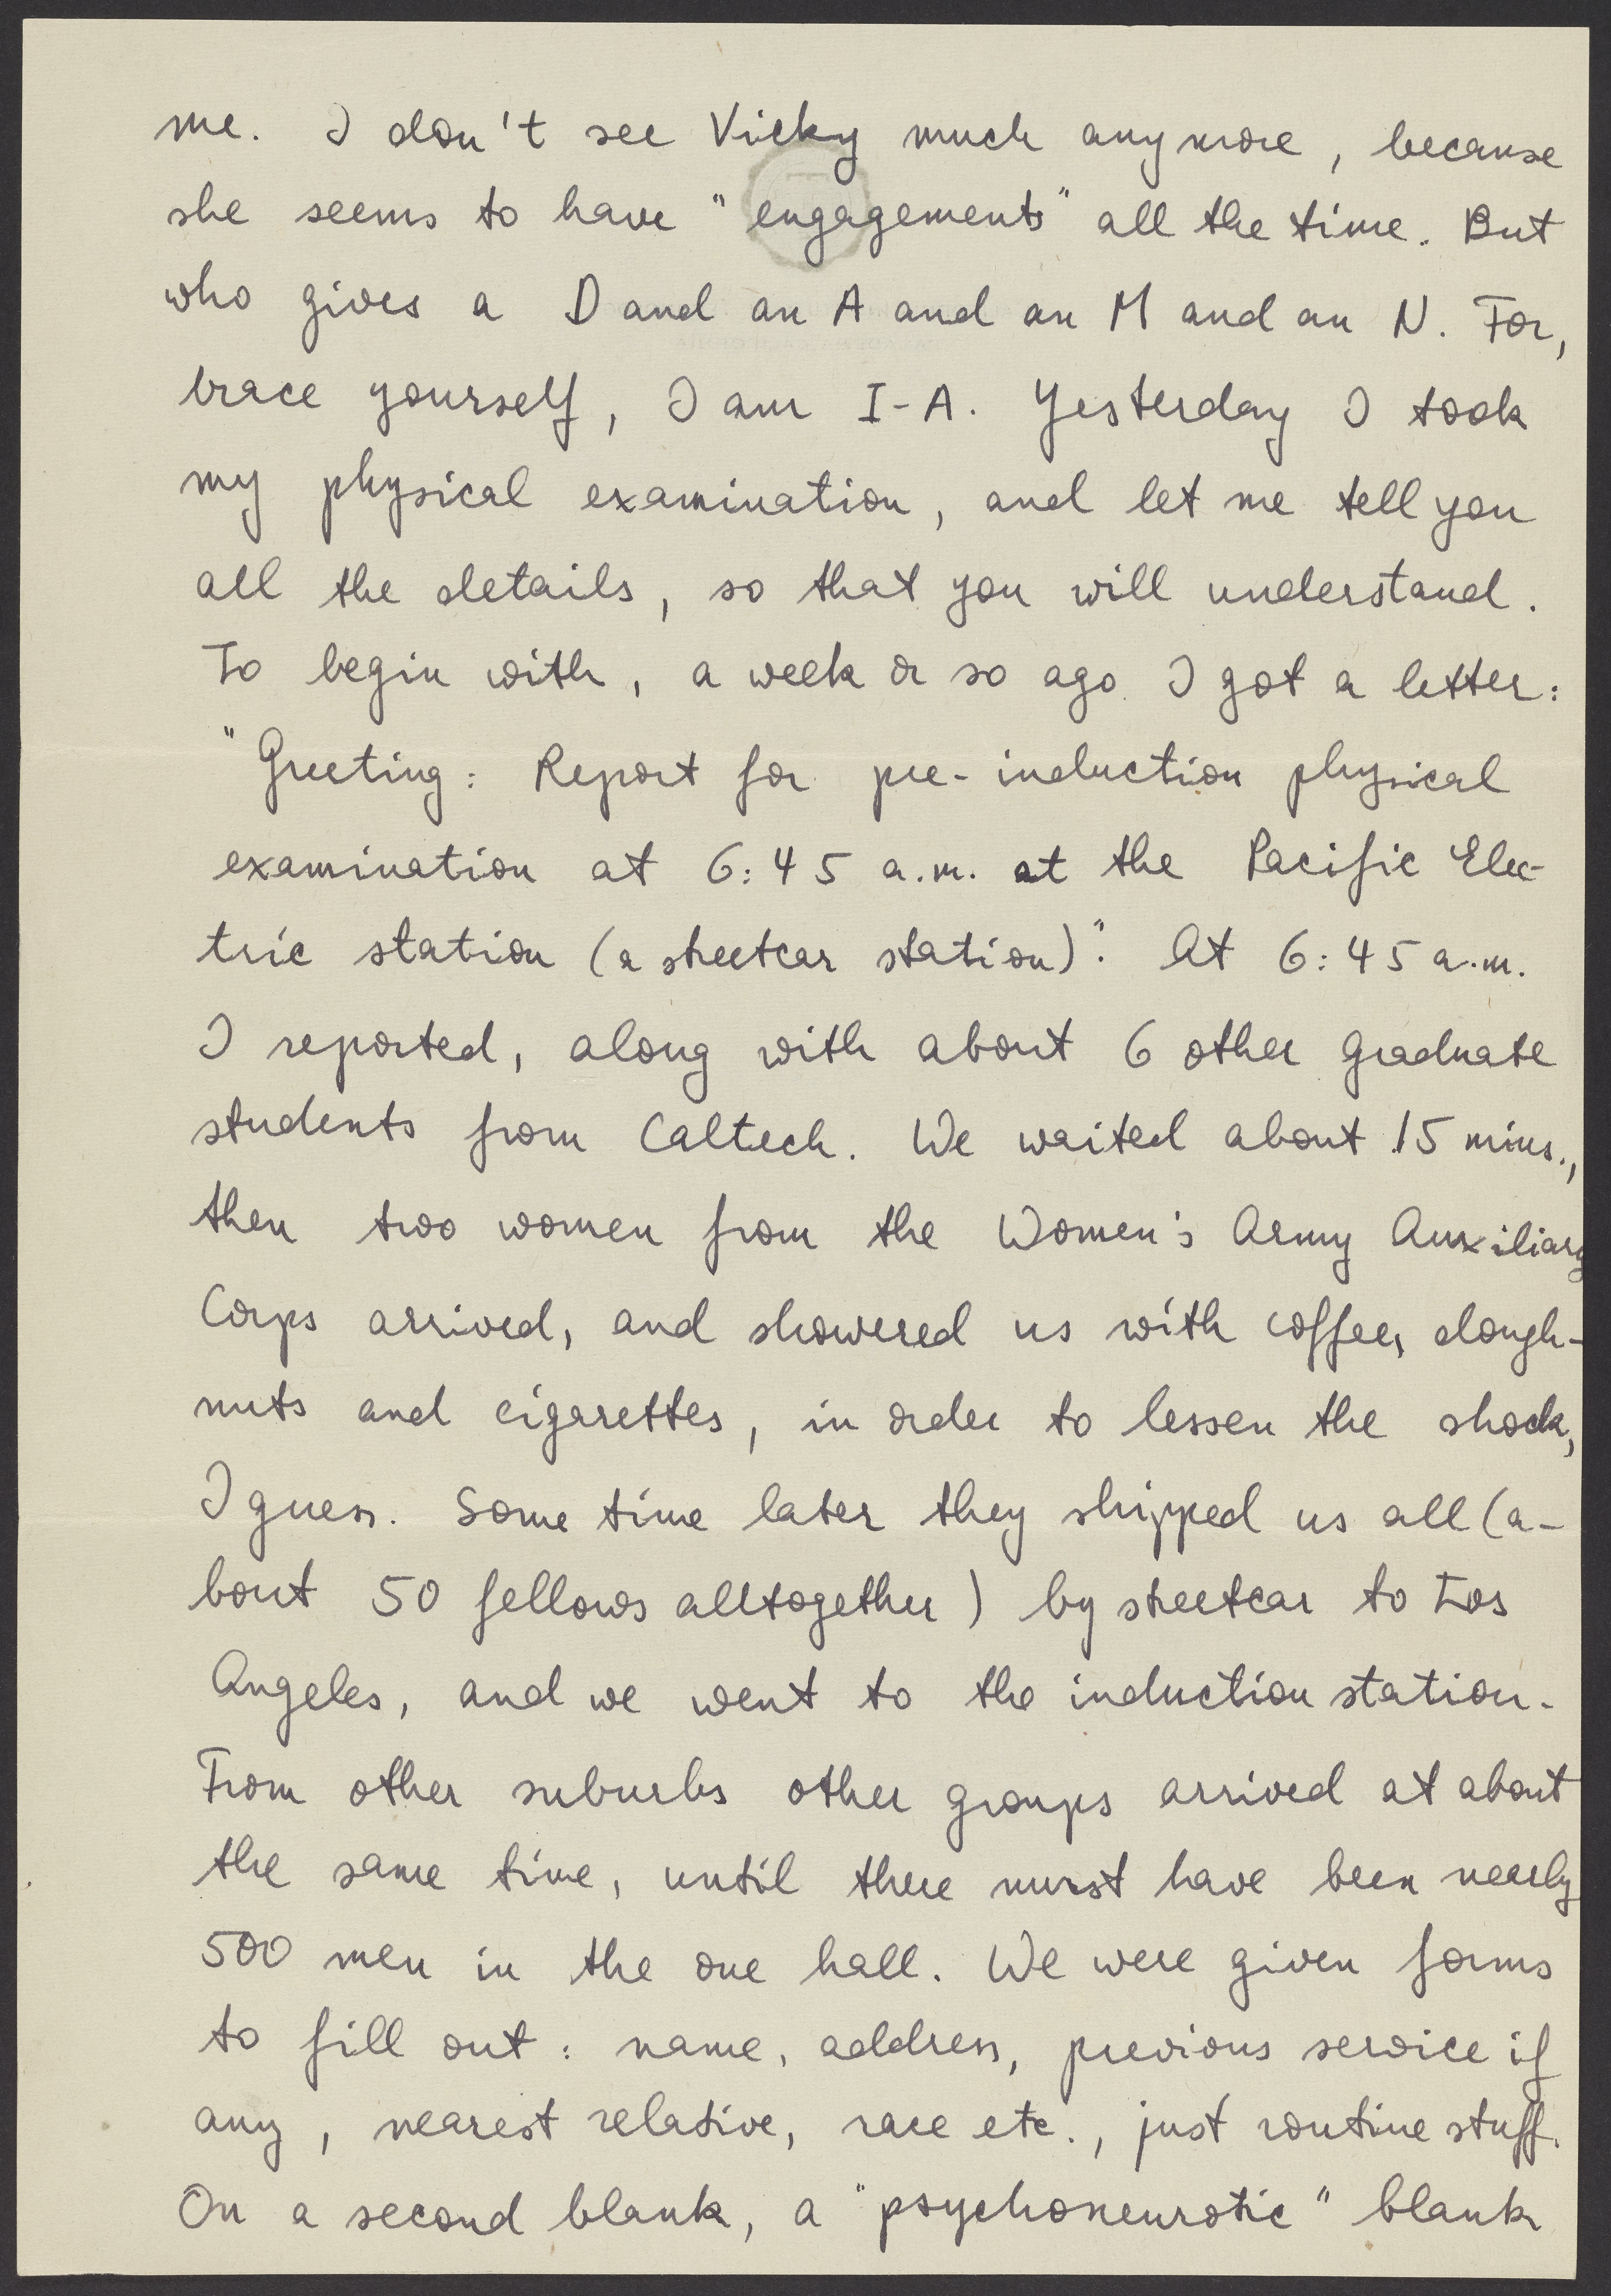 me. I don't see Vicky much anymore, because
she seems to have "engagements" all the time. But
who gives a D and an A and an M and an N. For,
brace yourself, I am I-A. Yesterday I took
my physical examination, and let me tell you
all the details, so that you will understand.
To begin with, a week or so ago I got a letter:
"Greeting: Report for pre-induction physical
examination at 6:45 a.m. at the Pacific Elec-
tric station (a streetcar station)." At 6:45 a.m.
I reported, along with about 6 other graduate
students from Caltech. We waited about 15 mins.,
then two women from the Women's Army Auxiliary
Corps arrived, and showered us with coffee, dough-
nuts and cigarettes, in order to lessen the shock,
I guess. Some time later they shipped us all (a-
bout 50 fellows alltogether) by streetcar to Los
Angeles, and we went to the induction station.
From other suburbs other groups arrived at about
the same time, until there must have been nearly
500 men in the one hall. We were given forms
to fill out: name, address, previous service if
any, nearest relative, race etc., just routine stuff.
On a second blank, a "psychoneurotic" blank